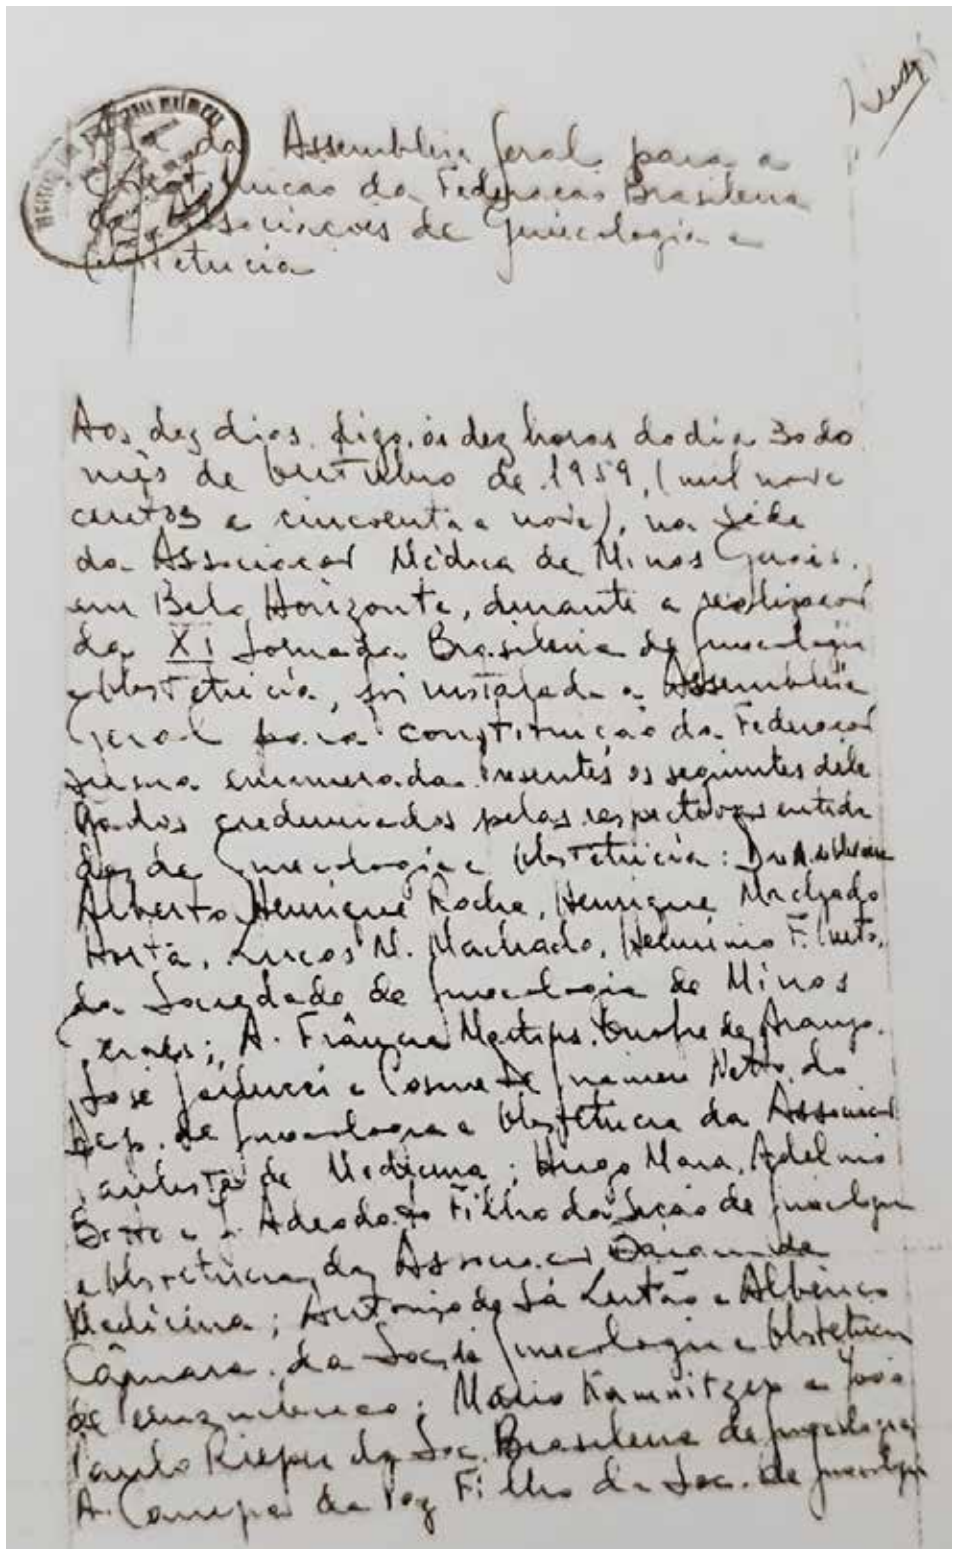 da Assembleia Geral para a
da Federacao Brasileira
Associacoes de Ginecologia e
Obstetricia
Aos dez dias, digo, às dez horas do dia 30 do
mês de Outubro de 1959, (mil nove
centos e cincoenta e nove), na séde
da Associacao Médica de Minas Gerais,
em Belo Horizonte, durante a realizacao
da XI Jornada Brasileira de Ginecologia
e Obstetricia, foi instalada a Assembleia
Geral para constituição da Federacao
enumerada. Presentes os seguintes dele
gados credenciados pelas respectivas entida
des de Ginecologia e Obstetricia: Drs.
Alberto Henrique Rocha, Henrique Machado
Horta, Lucas M. Machado, Herminio F.
da Sociedade de Ginecologia de Minas
Gerais; A. Franco Martins, Onofre de Araujo,
José e Cosme de Netto, do
Dep. de Ginecologia e Obstetricia da Associacao
Paulista de Medicina; Hugo Maia, Adelmo
Botto e J. Adeodato Filho da Seção de Ginecologia
e Obstetricia da Associacao Baiana de
Medicina; Antonio de Sá Leitão e Albérico
Câmara, da Soc. de Ginecologia e Obstetricia
de Pernambuco; Mário Kamnitzer e João
Paulo Rieper da Soc. Brasileira de Ginecologia
A. Campos da Paz Filho da Soc. de Ginecologia